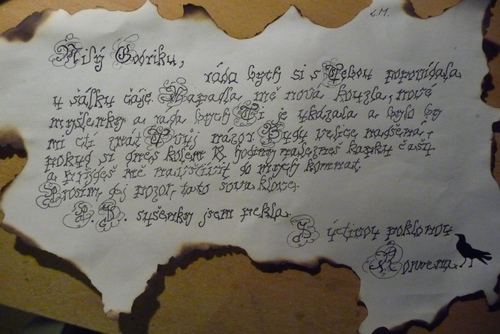 L.M.
Milý Godriku,
ráda bych si s Tebou popovídala
u šálku čaje. Napadla mě nová kouzla, nové
myšlenky a ráda bych Ti je ukázala a bylo by
mi ctí znát Tvůj názor. Budu velice nadšena,
pokud si dnes kolem 8. hodiny nalezneš kapku času
a přijdeš mě navštívit do mých komnat.
Prosím dej pozor, tato sova klove.
P.S. sušenky jsem pekla.
S úctivou poklonou
Rowena